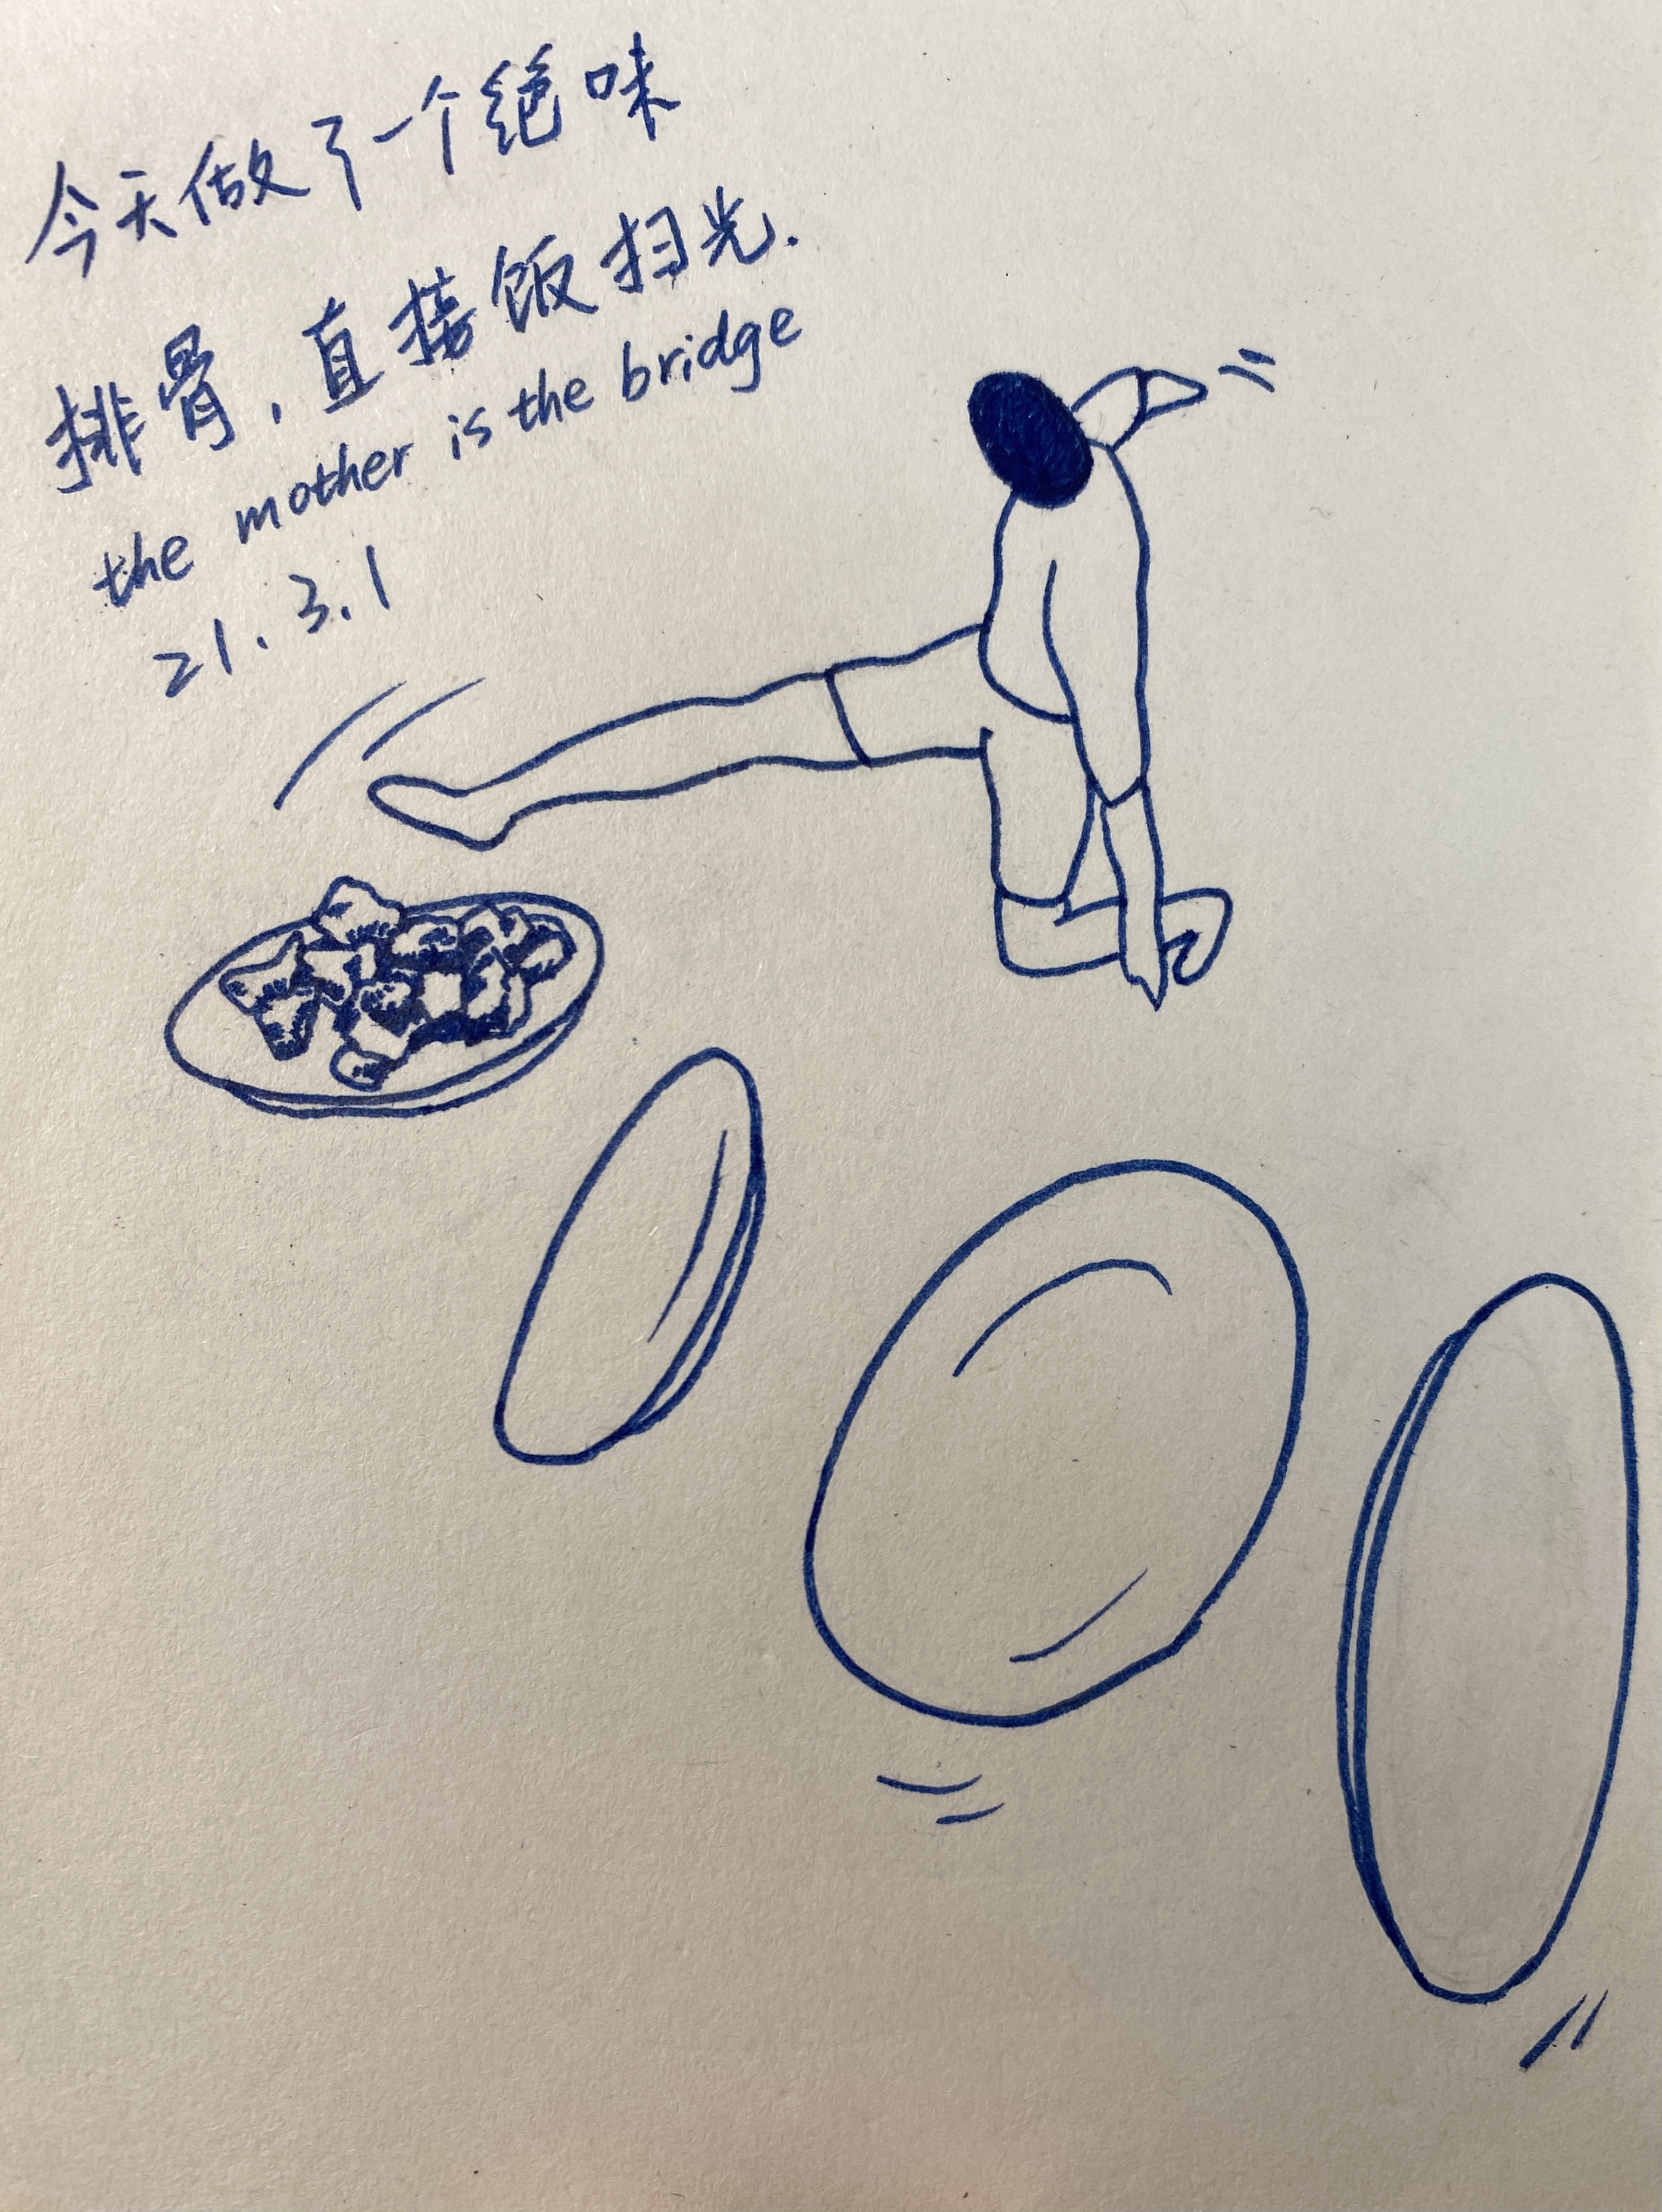 今天做了一个绝味
排骨，直接饭扫光.
the mother is the bridge
21.3.1